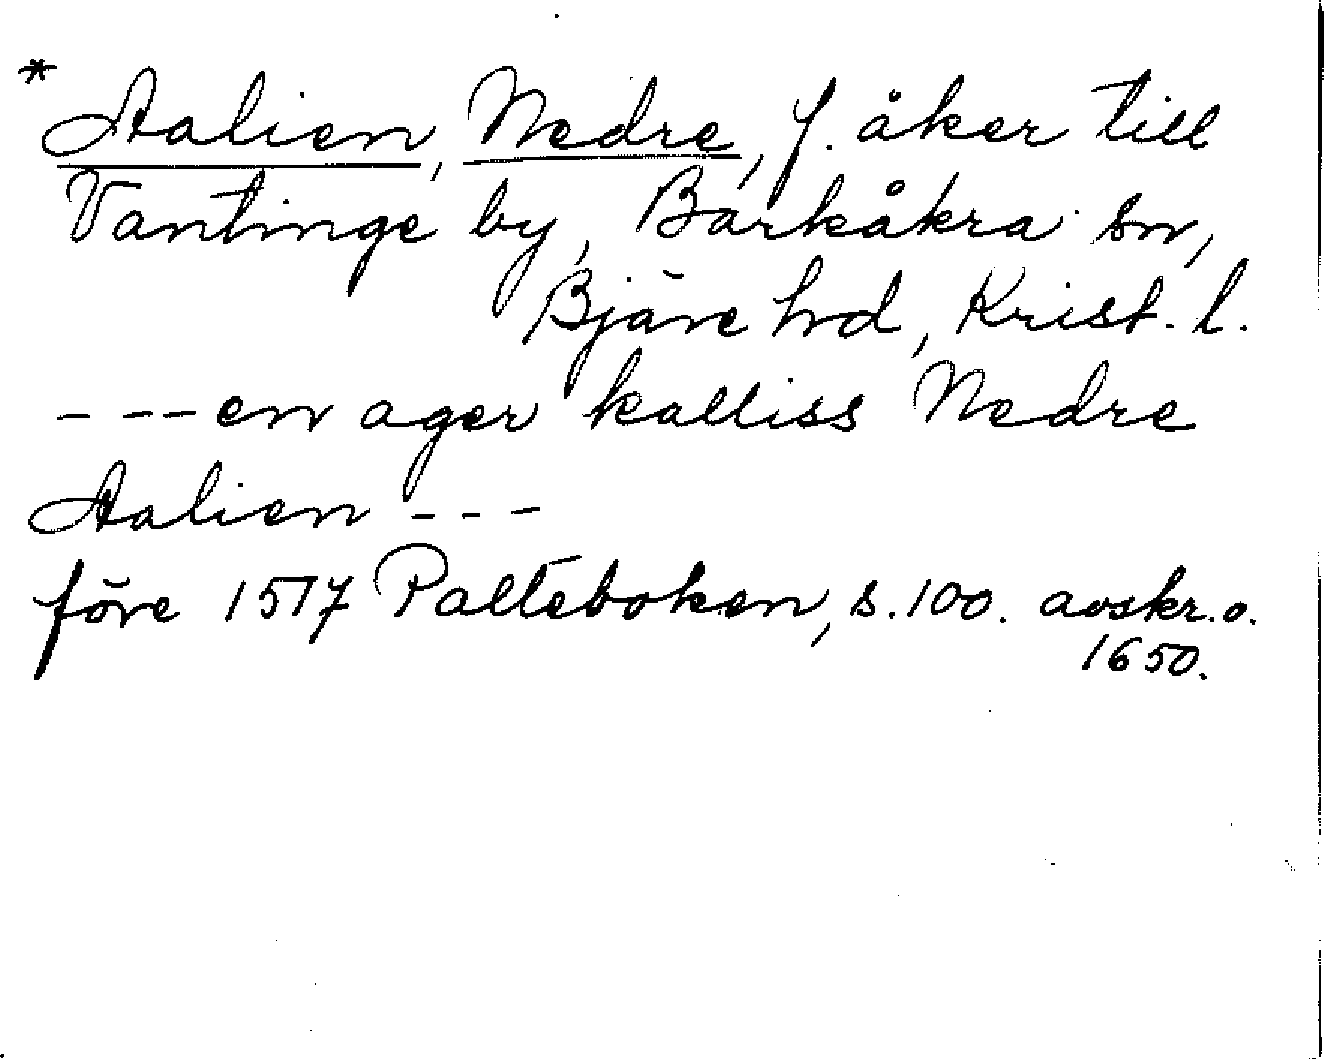 * Aalien, Nedre, f. åker till
Vantinge by, Barkåkra sn,
Bjäre hd, Krist. l.
- - - en ager kalliss Nedre
Aalien - - -
före 1517 Palteboken, s. 100. avskr. o.
1650.